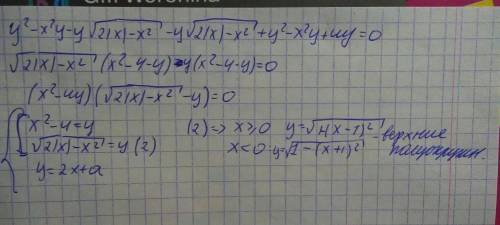 y²-x²y-y√2|x|-x² -y√2|x|-x² +y²-x²y+4y=0
√2|x|-x² (x²-4-y)-y(x²-4-y)=0
(x²-4y)(√2|x|-x² -y)=0
x²-4=y (2)=> x≥0 y=√1(x-1)²
√2|x|-x² =y (2) x<0: y=√1-(x+1)² -верхние
y=2x+a полуокружн.